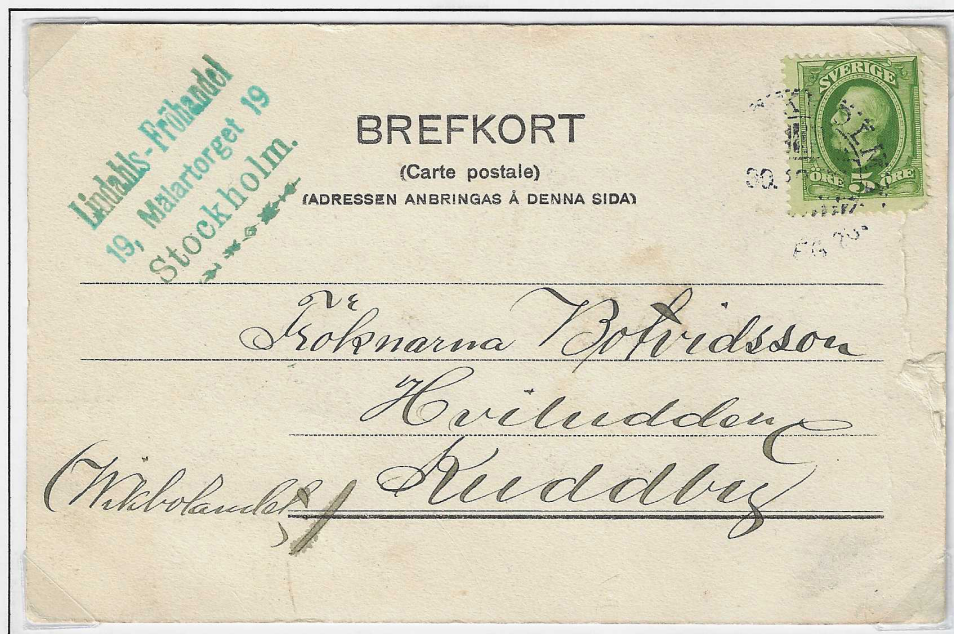 Lindahls-Fröhandel
19, Mälartorget 19
Stockholm.
BREFKORT
(Carte postale)
(ADRESSEN ANBRINGAS Å DENNA SIDA)
SVERIGE
ÖRE 5 ÖRE
Fröknarna Botvidsson
Hviludden
Kuddby
(Wikbolandet)